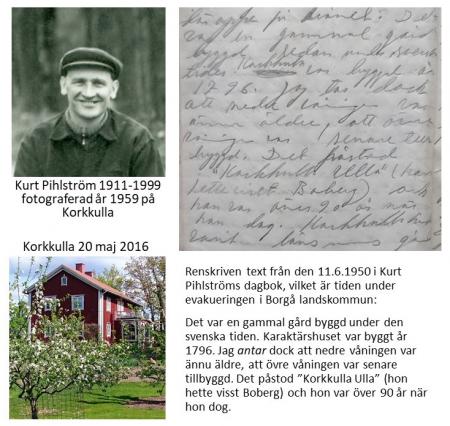 Kurt Pihlström 1911-1999
fotograferad år 1959 på
Korkkulla
Korkkulla 20 maj 2016
på vinnet? Det
var en gammal gård
byggd sedan under svenska
tiden. Korkkulla var byggt år
1796. Jag tar dock
att nedre våningen var
ännu äldre, att övre
våningen var senare till-
byggd. Det påstod
"Korkkulla Ulla" (hon
hette visst Boberg) och
hon var över 90 år när
hon dog. Korkkulla
varit
Renskriven text från den 11.6.1950 i Kurt
Pihlströms dagbok, vilket är tiden under
evakueringen i Borgå landskommun:
Det var en gammal gård byggd under den
svenska tiden. Karaktärshuset var byggt år
1796. Jag antar dock att nedre våningen var
ännu äldre, att övre våningen var senare
tillbyggd. Det påstod "Korkkulla Ulla" (hon
hette visst Boberg) och hon var över 90 år när
hon dog.